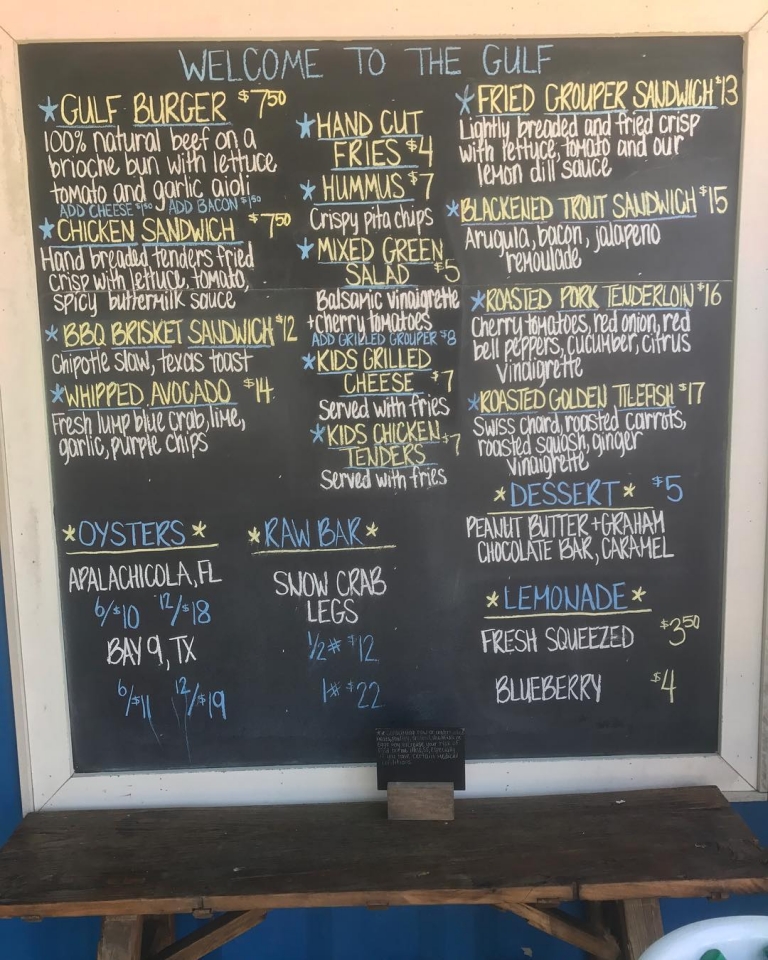 WELCOME TO THE GULF
*GULF BURGER $7.50
100% natural beef on a
brioche bun with lettuce
tomato and garlic aioli
ADD CHEESE $1.50 ADD BACON $1.50
*CHICKEN SANDWICH $7.50
Hand breaded tenders fried
crisp with lettuce, tomato,
spicy buttermilk sauce
*BBQ BRISKET SANDWICH $12
Chipotle slaw, texas toast
*WHIPPED AVOCADO $14
Fresh lump blue crab, lime,
garlic, purple chips
*HAND CUT
FRIES $4
*HUMMUS $7
Crispy pita chips
*MIXED GREEN
SALAD $5
Balsamic vinaigrette
+cherry tomatoes
ADD GRILLED GROUPER $8
*KIDS GRILLED
CHEESE $7
Served with fries
*KIDS CHICKEN
TENDERS $7
Served with fries
*FRIED GROUPER SANDWICH $13
Lightly breaded and fried crisp
with lettuce, tomato and our
lemon dill sauce
*BLACKENED TROUT SANDWICH $15
Arugula, bacon, jalapeno
remoulade
*ROASTED PORK TENDERLOIN $16
Cherry tomatoes, red onion, red
bell peppers, cucumber, citrus
vinaigrette
*ROASTED GOLDEN TILEFISH $17
Swiss chard, roasted carrots,
roasted squash, ginger
vinaigrette
*DESSERT* $5
PEANUT BUTTER + GRAHAM
CHOCOLATE BAR, CARAMEL
*OYSTERS*
APALACHICOLA, FL
6/$10 12/$18
BAY 9, TX
6/$11 12/$19
*RAW BAR*
SNOW CRAB
LEGS
1/2# $12
1# $22
*LEMONADE*
FRESH SQUEEZED $3.50
BLUEBERRY $4